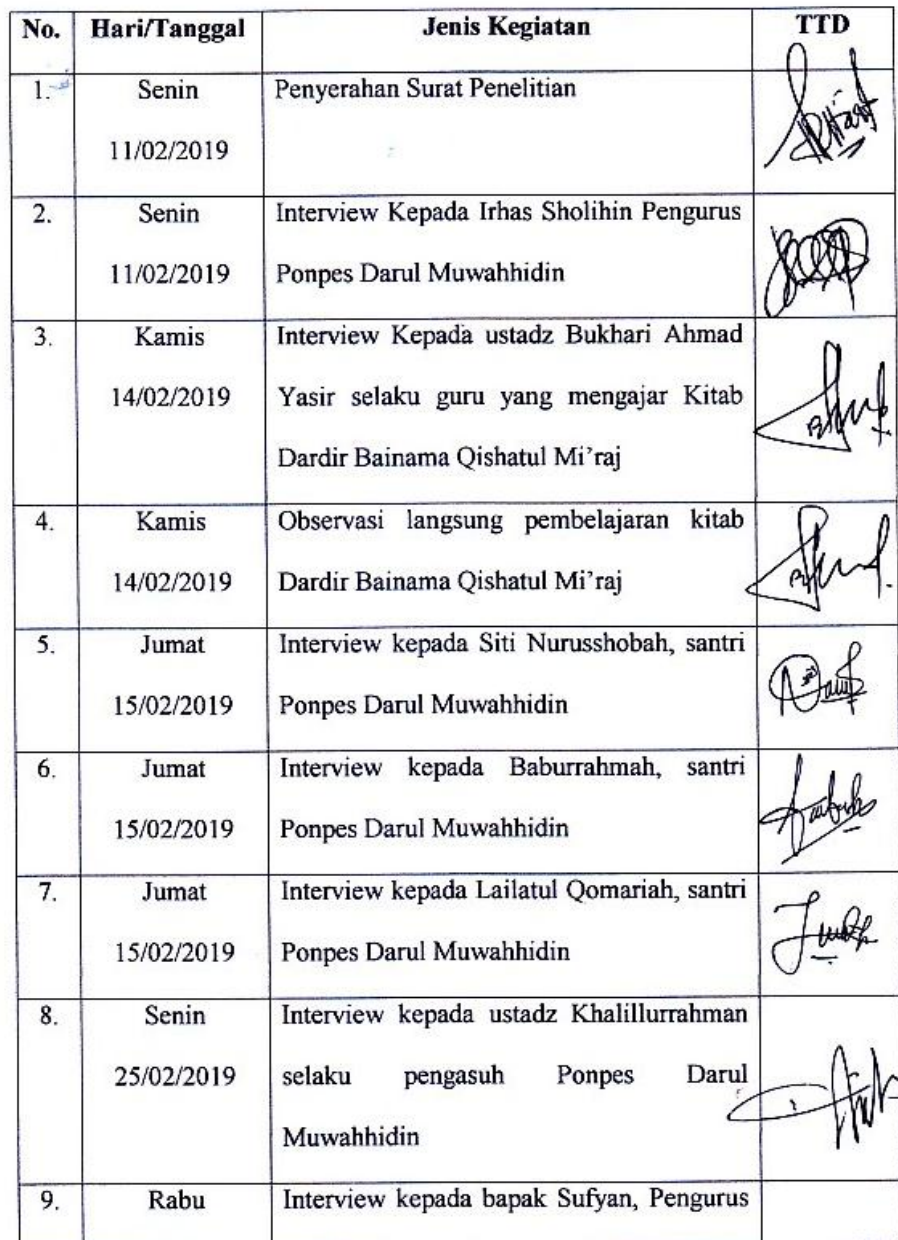 No. Hari/Tanggal Jenis Kegiatan TTD
1. Senin Penyerahan Surat Penelitian
11/02/2019
2. Senin Interview Kepada Irhas Sholihin Pengurus
11/02/2019 Ponpes Darul Muwahhidin
3. Kamis Interview Kepada ustadz Bukhari Ahmad
14/02/2019 Yasir selaku guru yang mengajar Kitab
Dardir Bainama Qishatul Mi'raj
4. Kamis Observasi langsung pembelajaran kitab
14/02/2019 Dardir Bainama Qishatul Mi'raj
5. Jumat Interview kepada Siti Nurusshobah, santri
15/02/2019 Ponpes Darul Muwahhidin
6. Jumat Interview kepada Baburrahmah, santri
15/02/2019 Ponpes Darul Muwahhidin
7. Jumat Interview kepada Lailatul Qomariah, santri
15/02/2019 Ponpes Darul Muwahhidin
8. Senin Interview kepada ustadz Khalillurrahman
25/02/2019 selaku pengasuh Ponpes Darul
Muwahhidin
9. Rabu Interview kepada bapak Sufyan, Pengurus